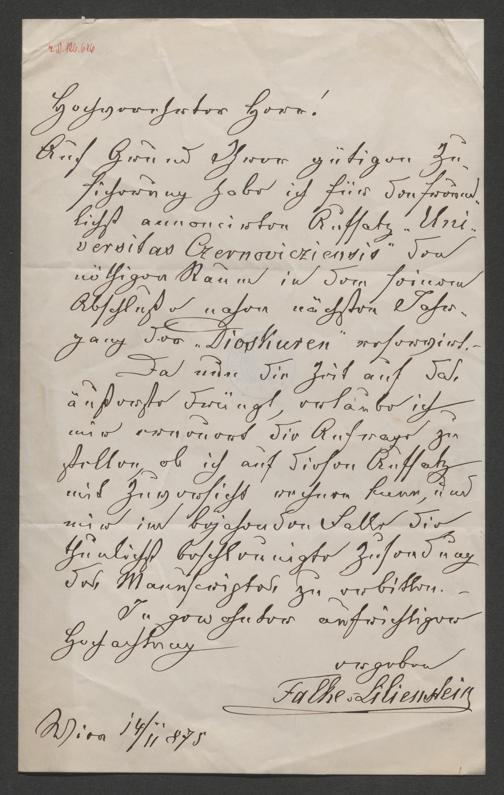 Hochverehrter Herr!
Auf Grund Ihrer gütigen Zu-
sicherung habe ich für den freund-
lichst annoncirten Aufsatz „Uni-
versitas Czernovicziensis" den
nöthigen Raum in dem seinem
Abschluße nahen nächsten Jahr-
gang der „Dioskuren" reservirt.–
Da nun die Zeit auf das
äußerste drängt, erlaube ich
mir erneuert die Anfrage zu
stellen, ob ich auf diesen Aufsatz
mit Zuversicht rechnen kann, und
mir im bejahenden Falle die
thunlichst beschleunigte Zusendung
des Manuscriptes zu erbitten.–
In gewohnter aufrichtiger
Hochachtung
ergeben
Falke v Lilienstein
Wien 14/11 875